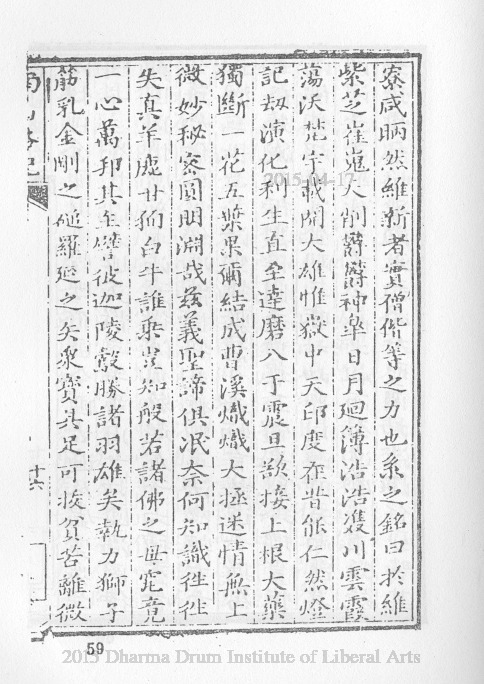 寮咸昞然維新者實僧偕等之力也系之銘曰於維
紫芝崔嵬天削欝欝神皐日月廻簿浩浩漫川雲霞
蕩沃梵宇載開大雄惟嶽中天印度在昔能仁然燈
記劫演化利生直至達磨八于震旦欲接上根大藥
獨斷一花五葉果彌結成曹溪熾熾大拯迷情無上
微妙秘密圓明淵哉茲義聖諦俱泯奈何知識徃徃
失真羊鹿甘狥白牛誰乗豈知般若諸佛之毋究竟
一心萬邦其主譬彼迦陵鷇勝諸羽雄矣執力獅子
筋乳金剛之磓羅延之矢衆寳具足可捄貧苦離微
十六
59
2015-04-17
2015 Dharma Drum Institute of Liberal Arts